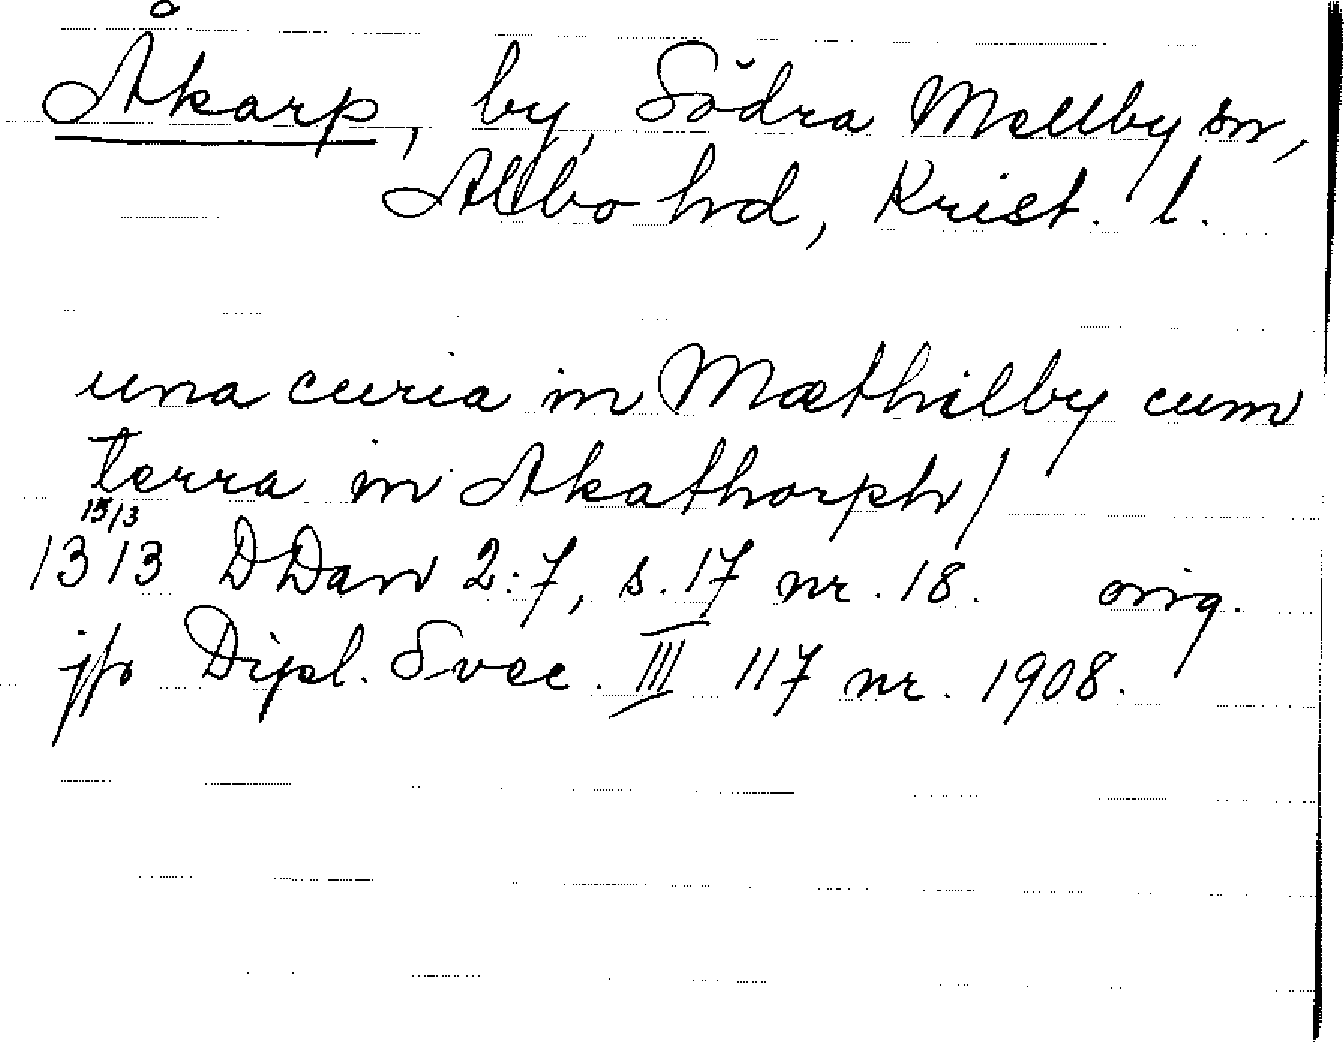 Åkarp, by, Södra Mellby sn,
Albo hd, Krist. l.
una curia in Mæthilby cum
terra in Akathorph/
15/3
1313 DDan 2:7, s. 17 nr. 18. orig.
jfr Dipl. Svec. III 117 nr. 1908.